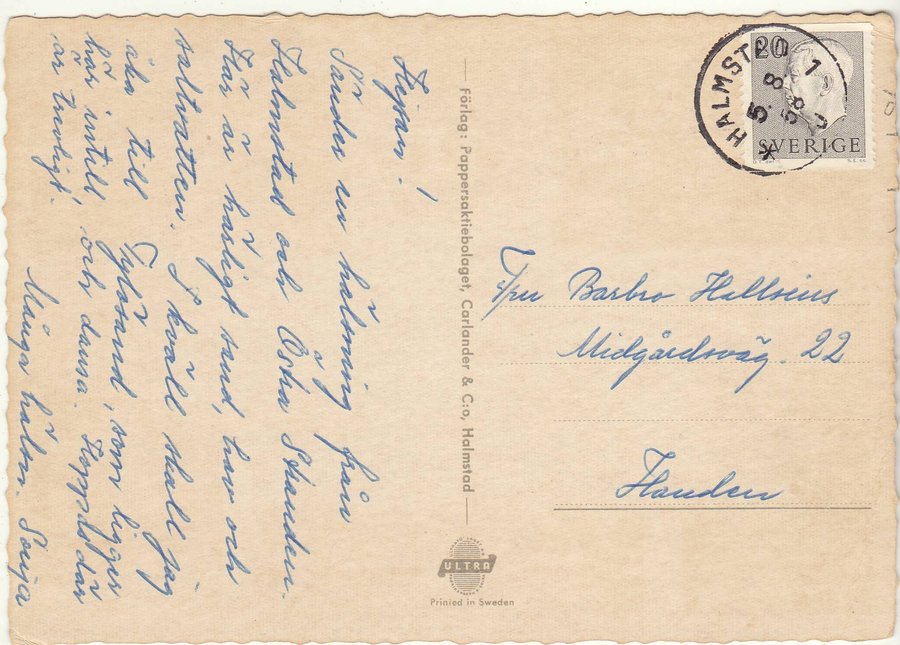 Hejsan!
Sänder en hälsning från
Halmstad och Östra Stranden.
Här är härligt sand, hav och
saltvatten. I kväll skall jag
åka till Tylösand, som ligger
här intill och dansa. Hoppas där
är trevligt.
Många hälsn. Sonja
Förlag: Pappersaktiebolaget, Carlander & C:o, Halmstad
ULTRA
Printed in Sweden
HALMSTAD 1
5. 8. 58
20
SVERIGE
Barbro Hallsenius
Midgårdsväg. 22
Handen